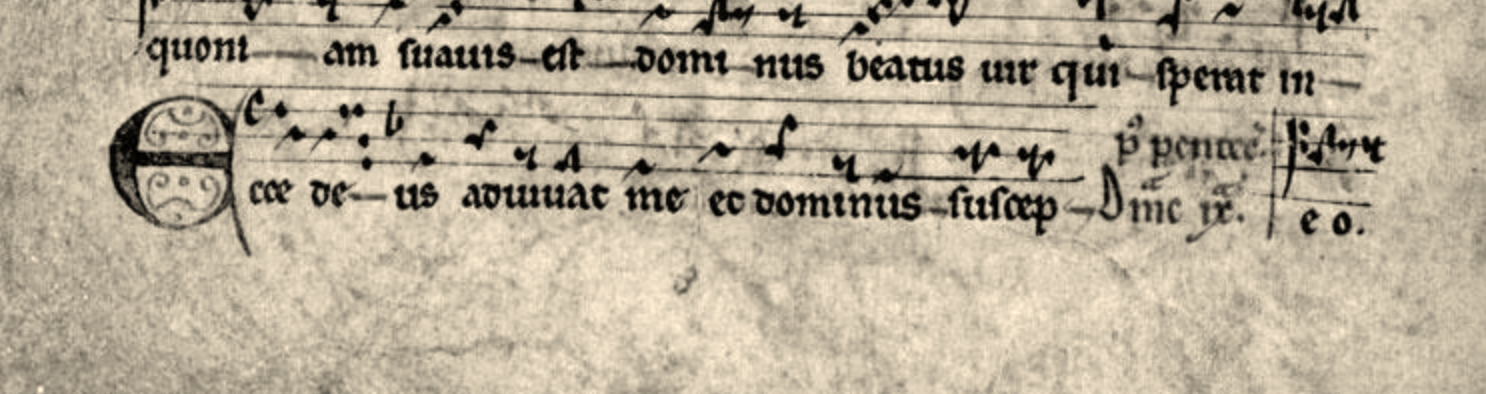 quoni am suauis est domi nus beatus uir qui sperat in
Ecce de us adiuuat me et dominus suscep Dnic ix. e o.